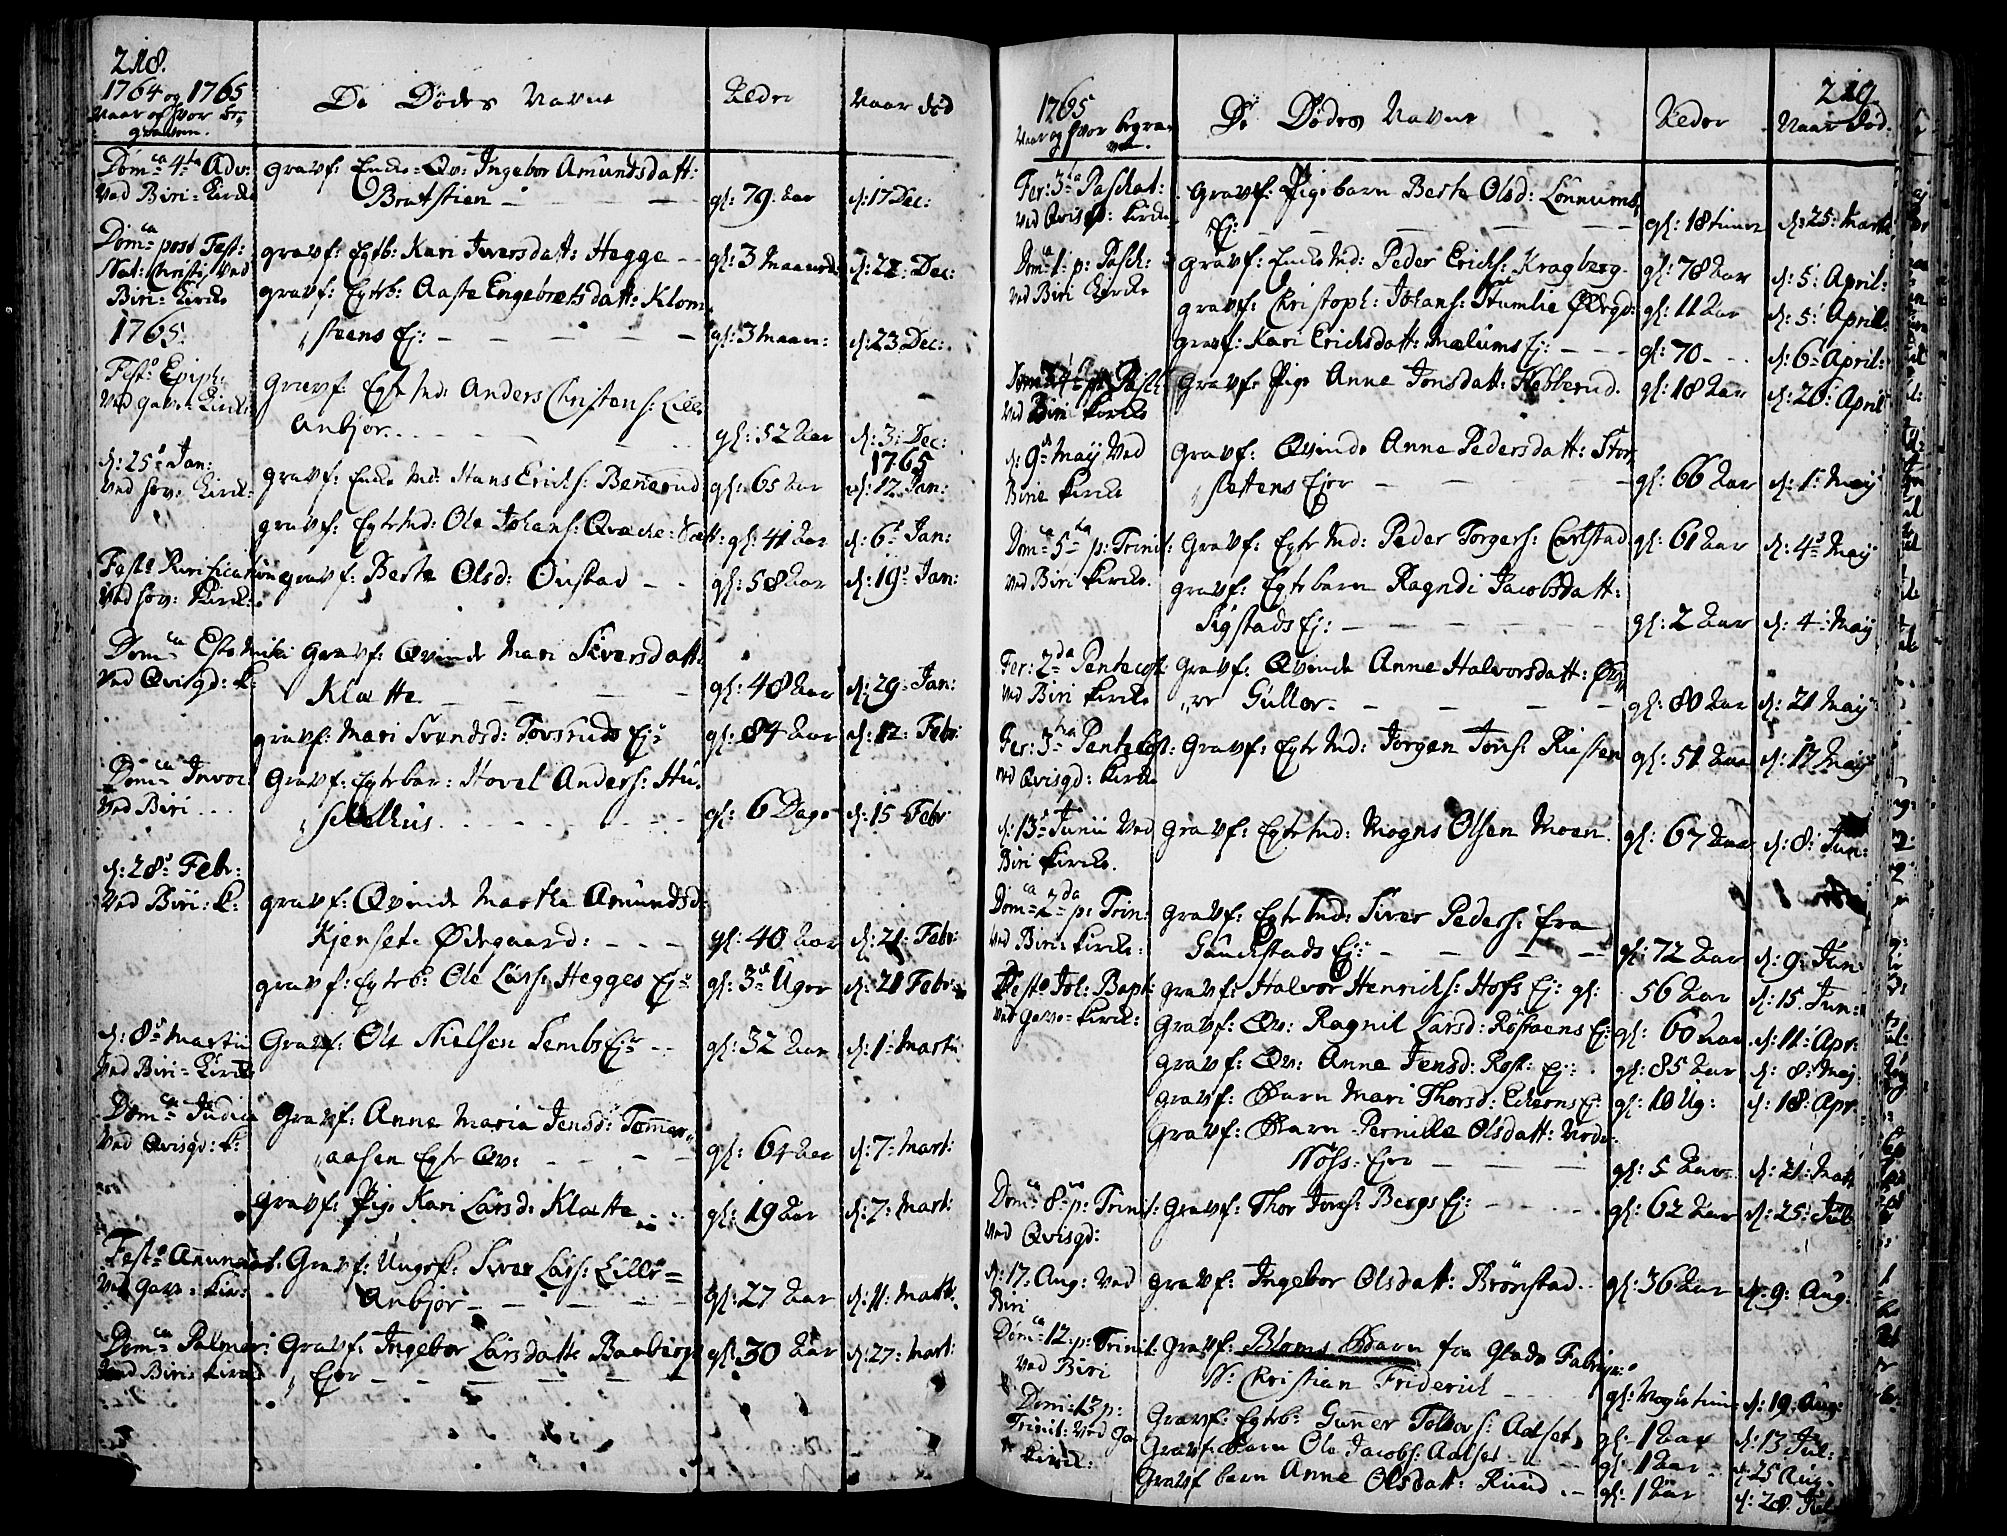 218.
1764 og 1765
Naar og hvor be-
graven.
De Dødes Navne
Alder
Naar død
Domca 4ta Adv:
ved Biri= Kirke
gravf: Enke=Qv: Ingebor Amundsdatt:
Bratstien
gl: 79 Aar
d: 17 Dec:
Domca post Fest:
Nat: Christi ved
Biri= Kirke
gravf: Egtb: Kari Iversdatt: Hegge
gl: 3 Maaned:
d: 22: Dec:
gravf: Egtb: Aaste Engebretsdatt: Klom-
steens Ej:
gl: 3 Maan:
d: 23 Dec:
1765.
Festo Epiph:
ved Gav= Kirk:
Gravf: Egte Md: Anders Christens: Lille
Anbjør
gl: 52 Aar
d: 3: Dec:
1765
d: 25 Jan:
ved hov: Kirk:
gravf: Enke Md: Hans Erichs: Bennerud
gl: 65 Aar
d: 12 Jan:
gravf: Egte Md: Ole Johans: Qvæke=
gl: 41 Aar
d: 6 Jan:
Festo Purification
ved hov: Kirk:
gravf: Berte Olsd: Onstad
gl: 58 Aar
d: 19 Jan:
Domca Esto Mihi
ved Qvisgd: K:
Gravf: Qvinde Mari Siversdatt:
Klætte
gl: 48 Aar
d: 29 Jan:
gravf: Mari Svendsd: Tovsruds Ej:
gl: 84 Aar
d: 12 Febr:
Domca Invoc:
ved Biri
Gravf: Egtebar: Hovel Anders: Hu-
selhus
gl: 6 Dage
d: 15 Febr
d: 28 Febr:
ved Biri: K:
gravf: Qvinde Marthe Amundsd:
Kjenset= Ødegaard:
gl: 40 Aar
d: 21 Febr:
gravf: Egteb: Ole Lars: Hegges Ej:
gl: 3 Uger
d: 21 Febr:
d: 8 Martii
ved Biri= Kirke
Gravf: Ole Nielsen Sembs Ej:
gl: 32 Aar
d: 1 Martii
Domca Judica
ved Qvisgd: K:
Gravf: Anne Maria Jensd: Tømmer-
aasen Egte Qv:
gl: 64 Aar
d: 7: Mart:
gravf: Pige Kari Larsd: Klætte
gl: 19 Aar
d: 7: Mart:
Festo Annunciat:
ved Gav= Kir:
Gravf: Ungk: Siver Lars: Lille=
Anbjør
gl: 27 Aar
d: 11: Mart:
Domca Palmar:
ved Biri: Kirke
Gravf: Ingebor Larsdatte Baaberg
Ejer
gl: 30 Aar
d: 27: Mart:
219.
1765
Naar og hvor begra-
ven.
De Dødes Navne
Alder
Naar Død.
Fer: 3tia Paschat:
ved Qvisgd: Kirke
Gravf: Pigebarn Berte Olsd: Lønnums
Ej:
gl: 18 timer
d: 25: Martii
Domca 1: p: Pasch:
ved Biri Kirke
gravf: Enke Md: Peder Erichs: Kragberg
gl: 78 Aar
d: 5: April:
gravf: Christoph: Johans: Stumlie Ødegd:
gl: 11 Aar
d: 5: April:
gravf: Kari Erichsdatt: Mælums Ej:
gl: 70
d: 6 April:
ved Biri Kirke
Gravf: Pige Anne Jonsdatt: Hebberud
gl: 18 Aar
d: 26: April
d: 9 May ved
Birie Kirke
Gravf: Qvinde Anne Pedersdatt: Stor-
slettens Ejer
gl: 66 Aar
d: 1: May
Domca 5ta p: Trinit:
ved Biri Kirke
Gravf: Egte Md: Peder Torgers: Carlstad
gl: 61 Aar
d: 4 May
gravf: Egtebarn Ragndi Jacobsdatt:
Sigstads Ej:
gl: 2 Aar
d: 4 May
Fer: 2da Pentecost:
ved Biri Kirke
Gravf: Qvinde Anne Halvorsdatt: Øv-
re Gullor
gl: 80 Aar
d: 21 May
Fer: 3tia Pentecost:
ved Qvisgd: Kirke
Gravf: Egte Md: Jørgen Jons: Riisen
gl: 51 Aar
d: 17 May
d: 13 Junii ved
Biri Kirke
Gravf: Egte Md: Mogns Olsen Moen
gl: 67 Aar
d: 8: Jun:
Domca 2da p: Trin:
ved Biri= Kirke:
Gravf: Egte Md: Siver Peders: fra
Gaukstads Ej:
gl: 72 Aar
d: 9: Jun:
Festo Joh: Bapt:
ved Gave= Kirk:
gravf: Halvor Henrichs: Hofs Ej: gl:
56 Aar
d: 15 Jun:
Gravf: Qv: Ragnil Larsd: Røstaens Ej:
gl: 60 Aar
d: 11: Apr:
gravf: Qv: Anne Jensd: Røst: Ej:
gl: 85 Aar
d: 8: Maj
gravf: Barn Mari Thorsd: Ekerns Ej:
gl: 10 Ug:
d: 18: Apr.
Gravf: Barn Pernille Olsdatt:
Ejer
gl: 5 Aar
d: 21: Maii
Domca 8va p: Trinit:
ved Qvisgd:
Gravf: Thor Jors: Bergs Ej:
gl: 62 Aar
d: 25: Jul
d: 17: Aug: ved
Biri
gravf: Ingebor Olsdatt: Brønstad
gl: 36 Aar
d: 9: Aug:
Domca 12: p: Trinit:
ved Biri
Gravf: Bloms Barn fra Glads Fabriqv:
N: Christian Friderich
d: 19: Aug:
Dom: 13 p:
Trinit: ved Gav
Kirk:
Gravf: Egteb: Gunner Tollevs: Aalset
gl: 1 Aar
d: 13 Jul:
Gravf: Barn Ole Jacobs: Aalset
gl: 1 Aar
d: 25 Aug.
Gravf barn Anne Olsdatt: Ruud
gl: 1 Aar
d: 28: Jul